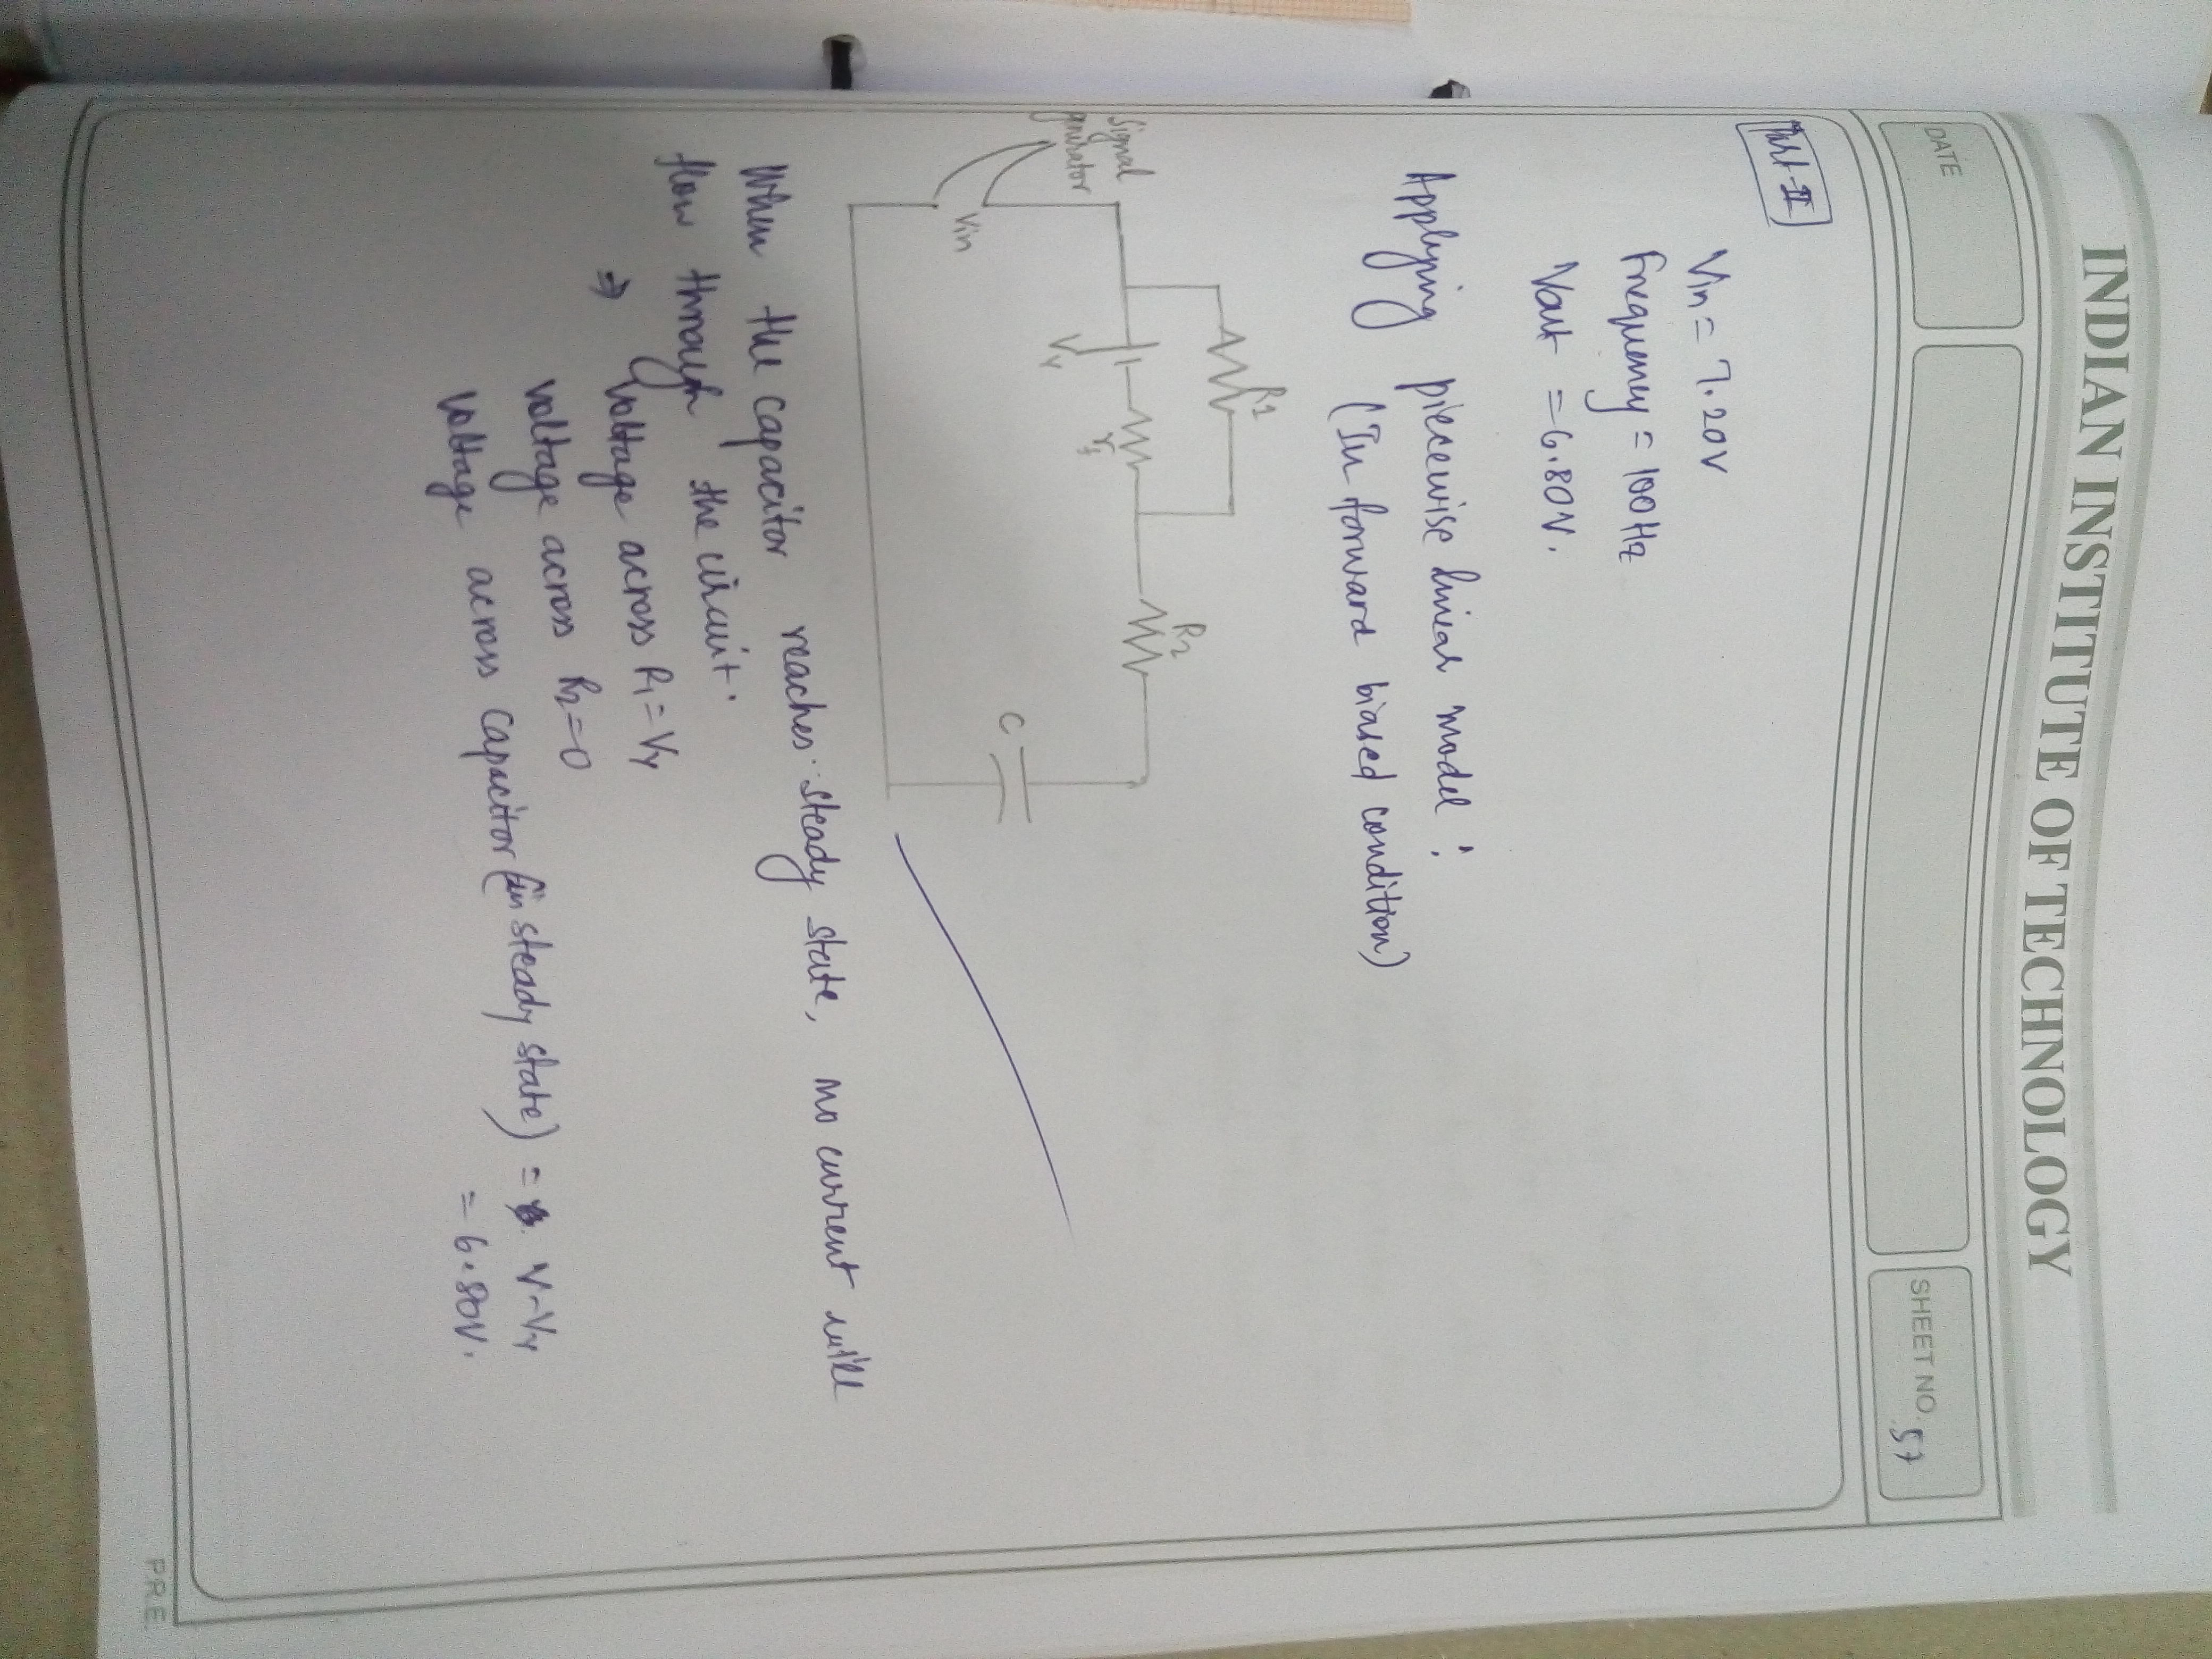 INDIAN INSTITUTE OF TECHNOLOGY
DATE
SHEET NO. 57
Part-II
Vin = 7.20V
Frequency = 100Hz
Vout = 6.80V.
Applying piecewise linear model :
(In forward biased condition)
R1
R2
Signal
generator
rf
Vγ
C
Vin
When the capacitor reaches steady state, no current will
flow through the circuit.
⇒ Voltage across R1 = Vγ
Voltage across R2 = 0
Voltage across capacitor (in steady state) = V-Vγ
= 6.80V.
P.R.E.